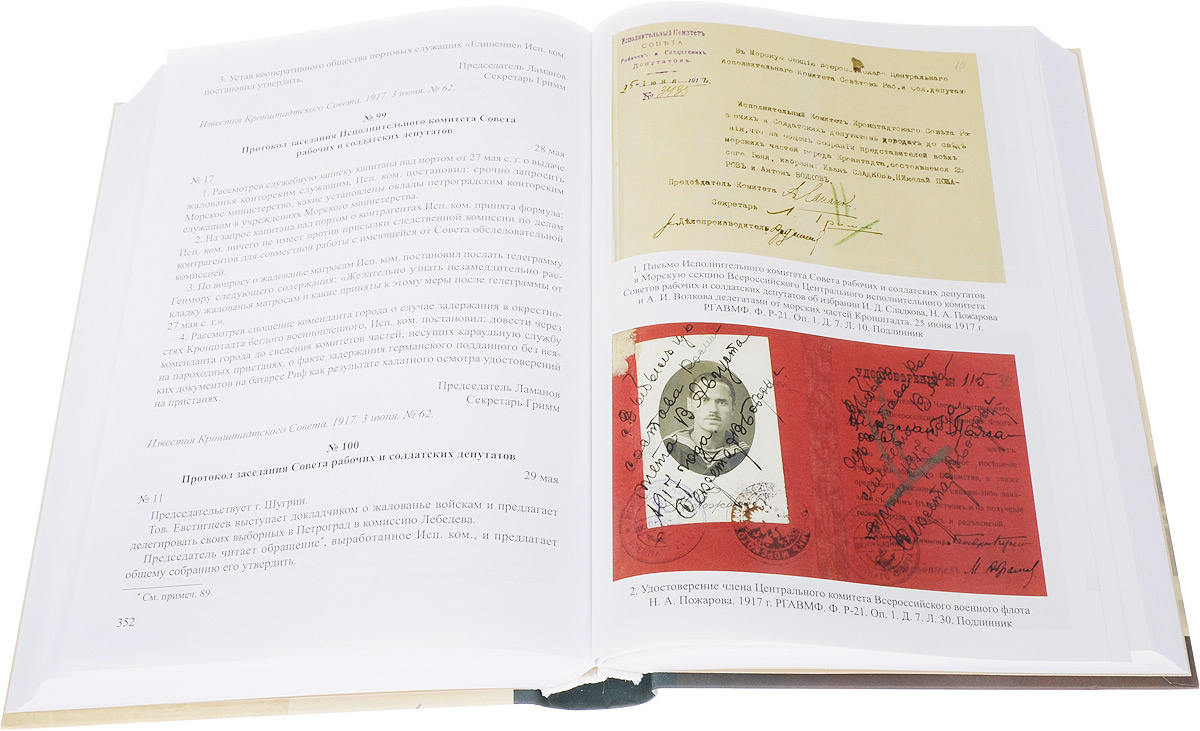 3. Устав кооперативного общества портовых служащих «Единение» Исп. ком.
постановил утвердить.
Председатель Ламанов
Секретарь Гримм
Известия Кронштадтского Совета. 1917. 3 июня. № 62.
№ 99
Протокол заседания Исполнительного комитета Совета
рабочих и солдатских депутатов
28 мая
№ 17
1. Рассмотрев служебную записку капитана над портом от 27 мая с. г. о выдаче
жалованья конторским служащим, Исп. ком. постановил: срочно запросить
Морское министерство, какие установлены оклады петроградским конторским
служащим в учреждениях Морского министерства.
2. На запрос капитана над портом о контрагентах Исп. ком. принята формула:
Исп. ком. ничего не имеет против присылки следственной комиссии по делам
контрагентов для совместной работы с имеющейся от Совета обследовательной
комиссией.
3. По вопросу о жалованье матросам Исп. ком. постановил послать телеграмму
Генмору следующего содержания: «Желательно узнать незамедлительно рас-
кладку жалованья матросам и какие приняты к этому меры после телеграммы от
27 мая с. г.».
4. Рассмотрев сношение коменданта города о случае задержания в окрестно-
стях Кронштадта беглого военнопленного, Исп. ком. постановил: довести через
коменданта города до сведения комитетов частей, несущих караульную службу
на пароходных пристанях, о факте задержания германского подданного без вся-
ких документов на батарее Риф как результате халатного осмотра удостоверений
на пристанях.
Председатель Ламанов
Секретарь Гримм
Известия Кронштадтского Совета. 1917. 3 июня. № 62.
№ 100
Протокол заседания Совета рабочих и солдатских депутатов
29 мая
№ 11
Председательствует т. Шугрин.
Тов. Евстигнеев выступает докладчиком о жалованье войскам и предлагает
делегировать своих выборных в Петроград в комиссию Лебедева.
Председатель читает обращение*, выработанное Исп. ком., и предлагает
общему собранию его утвердить.
* См. примеч. 89.
352
Исполнительный Комитетъ
СОВѢТА
Рабочих и Солдатских
Депутатовъ.
25 - іюня 1917 г.
№ 3495
10
Въ Морскую Секцію Всероссійскаго Центральнаго
Исполнительнаго Комитета Совѣтовъ Раб. и Сол. депутатов
Исполнительный Комитетъ Кронштадтскаго Совѣта Ра-
бочихъ и Солдатскихъ депутатовъ доводитъ до свѣд
нія, что на общем собраніи представителей всѣхъ
морскихъ частей города Кронштадта, состоявшемся 25
сего Іюня, избраны: Иванъ СЛАДКОВЪ, Николай ПОЖА-
РОВЪ и Антонъ ВОЛКОВЪ.
Предсѣдатель Комитета
Секретарь
Дѣлопроизводитель
1. Письмо Исполнительного комитета Совета рабочих и солдатских депутатов
в Морскую секцию Всероссийского Центрального исполнительного комитета
Советов рабочих и солдатских депутатов об избрании И. Д. Сладкова, Н. А. Пожарова
и А. И. Волкова делегатами от морских частей Кронштадта. 25 июня 1917 г.
РГАВМФ. Ф. Р-21. Оп. 1. Д. 7. Л. 10. Подлинник
УДОСТОВЕРЕНИЕ № 115
2. Удостоверение члена Центрального комитета Всероссийского военного флота
Н. А. Пожарова. 1917 г. РГАВМФ. Ф. Р-21. Оп. 1. Д. 7. Л. 30. Подлинник